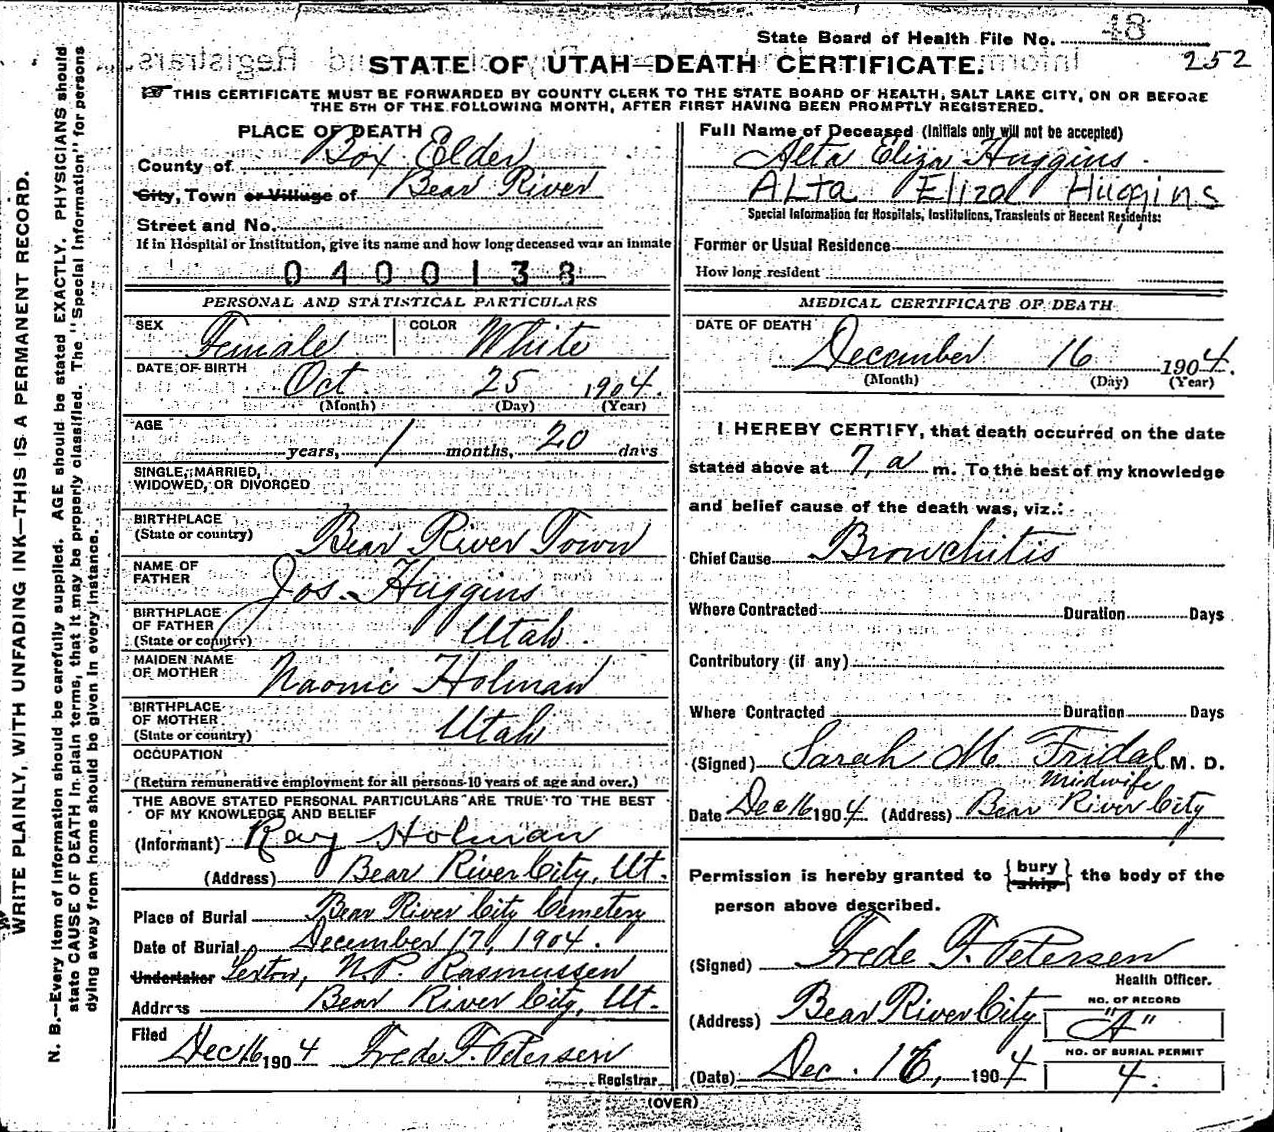 State Board of Health File No. 48
252
STATE OF UTAH—DEATH CERTIFICATE.
THIS CERTIFICATE MUST BE FORWARDED BY COUNTY CLERK TO THE STATE BOARD OF HEALTH, SALT LAKE CITY, ON OR BEFORE
THE 5TH OF THE FOLLOWING MONTH, AFTER FIRST HAVING BEEN PROMPTLY REGISTERED.
PLACE OF DEATH
County of Box Elder
City, Town or Village of Bear River
Street and No.
If in Hospital or Institution, give its name and how long deceased was an inmate
0400138
PERSONAL AND STATISTICAL PARTICULARS
SEX Female COLOR White
DATE OF BIRTH Oct 25 1904.
(Month) (Day) (Year)
AGE
years, 1 months, 20 days
SINGLE, MARRIED,
WIDOWED, OR DIVORCED
BIRTHPLACE
(State or country) Bear River Town
NAME OF
FATHER Jos. Huggins
BIRTHPLACE
OF FATHER
(State or country) Utah.
MAIDEN NAME
OF MOTHER Naomie Holman
BIRTHPLACE
OF MOTHER
(State or country) Utah
OCCUPATION
(Return remunerative employment for all persons 10 years of age and over.)
THE ABOVE STATED PERSONAL PARTICULARS ARE TRUE TO THE BEST
OF MY KNOWLEDGE AND BELIEF
(Informant) Ray Holman
(Address) Bear River City, Ut.
Place of Burial Bear River City Cemetery
Date of Burial December 17, 1904.
Undertaker Sexton, N.P. Rasmussen
Address Bear River City, Ut.
Filed
Dec 16 1904 Frede F. Petersen
Registrar
Full Name of Deceased (Initials only will not be accepted)
Alta Eliza Huggins.
ALta Eliza Huggins
Special Information for Hospitals, Institutions, Transients or Recent Residents:
Former or Usual Residence
How long resident
MEDICAL CERTIFICATE OF DEATH
DATE OF DEATH
December 16 1904.
(Month) (Day) (Year)
I HEREBY CERTIFY, that death occurred on the date
stated above at 7, a m. To the best of my knowledge
and belief cause of the death was, viz.:
Chief Cause Bronchitis
Where Contracted Duration Days
Contributory (if any)
Where Contracted Duration Days
(Signed) Sarah M. Fridal M. D.
Midwife
Date Dec 16 1904 (Address) Bear River City
Permission is hereby granted to {bury
ship} the body of the
person above described.
(Signed) Frede F. Petersen
Health Officer.
(Address) Bear River City
NO. OF RECORD
"A"
(Date) Dec. 16, 1904
NO. OF BURIAL PERMIT
4.
(OVER)
WRITE PLAINLY, WITH UNFADING INK—THIS IS A PERMANENT RECORD.
N. B.—Every item of information should be carefully supplied. AGE should be stated EXACTLY. PHYSICIANS should
state CAUSE OF DEATH in plain terms, that it may be properly classified. The "Special Information" for persons
dying away from home should be given in every instance.